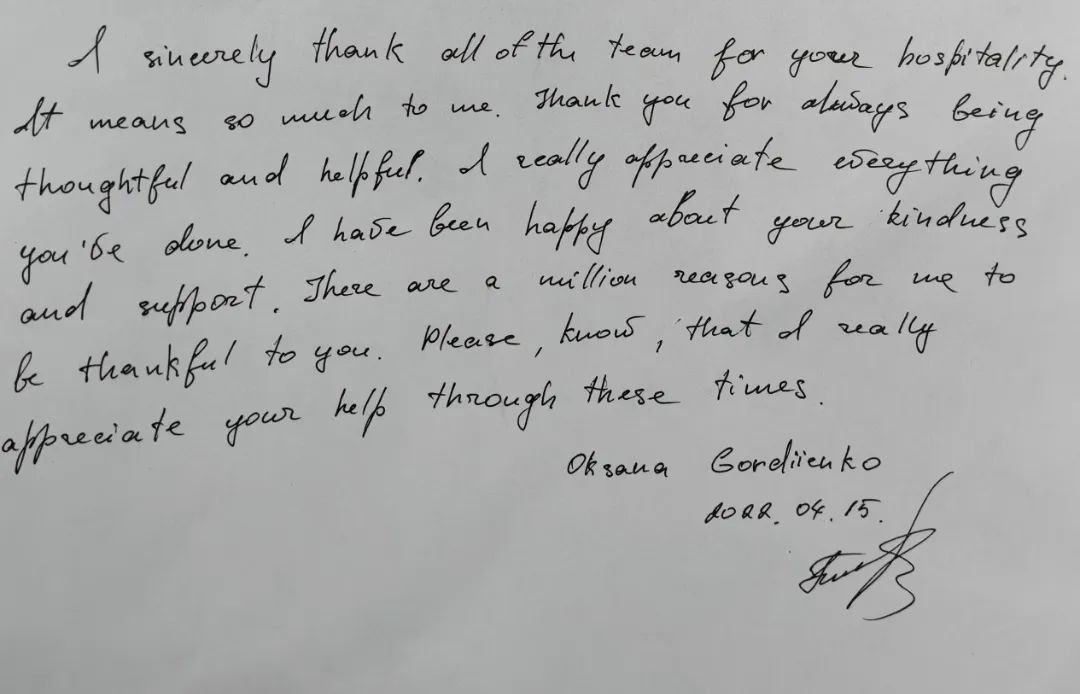 I sincerely thank all of the team for your hospitality.
It means so much to me. Thank you for always being
thoughtful and helpful. I really appreciate everything
you've done. I have been happy about your kindness
and support. There are a million reasons for me to
be thankful to you. Please, know, that I really
appreciate your help through these times.
Oksana Gordiienko
2022. 04. 15.